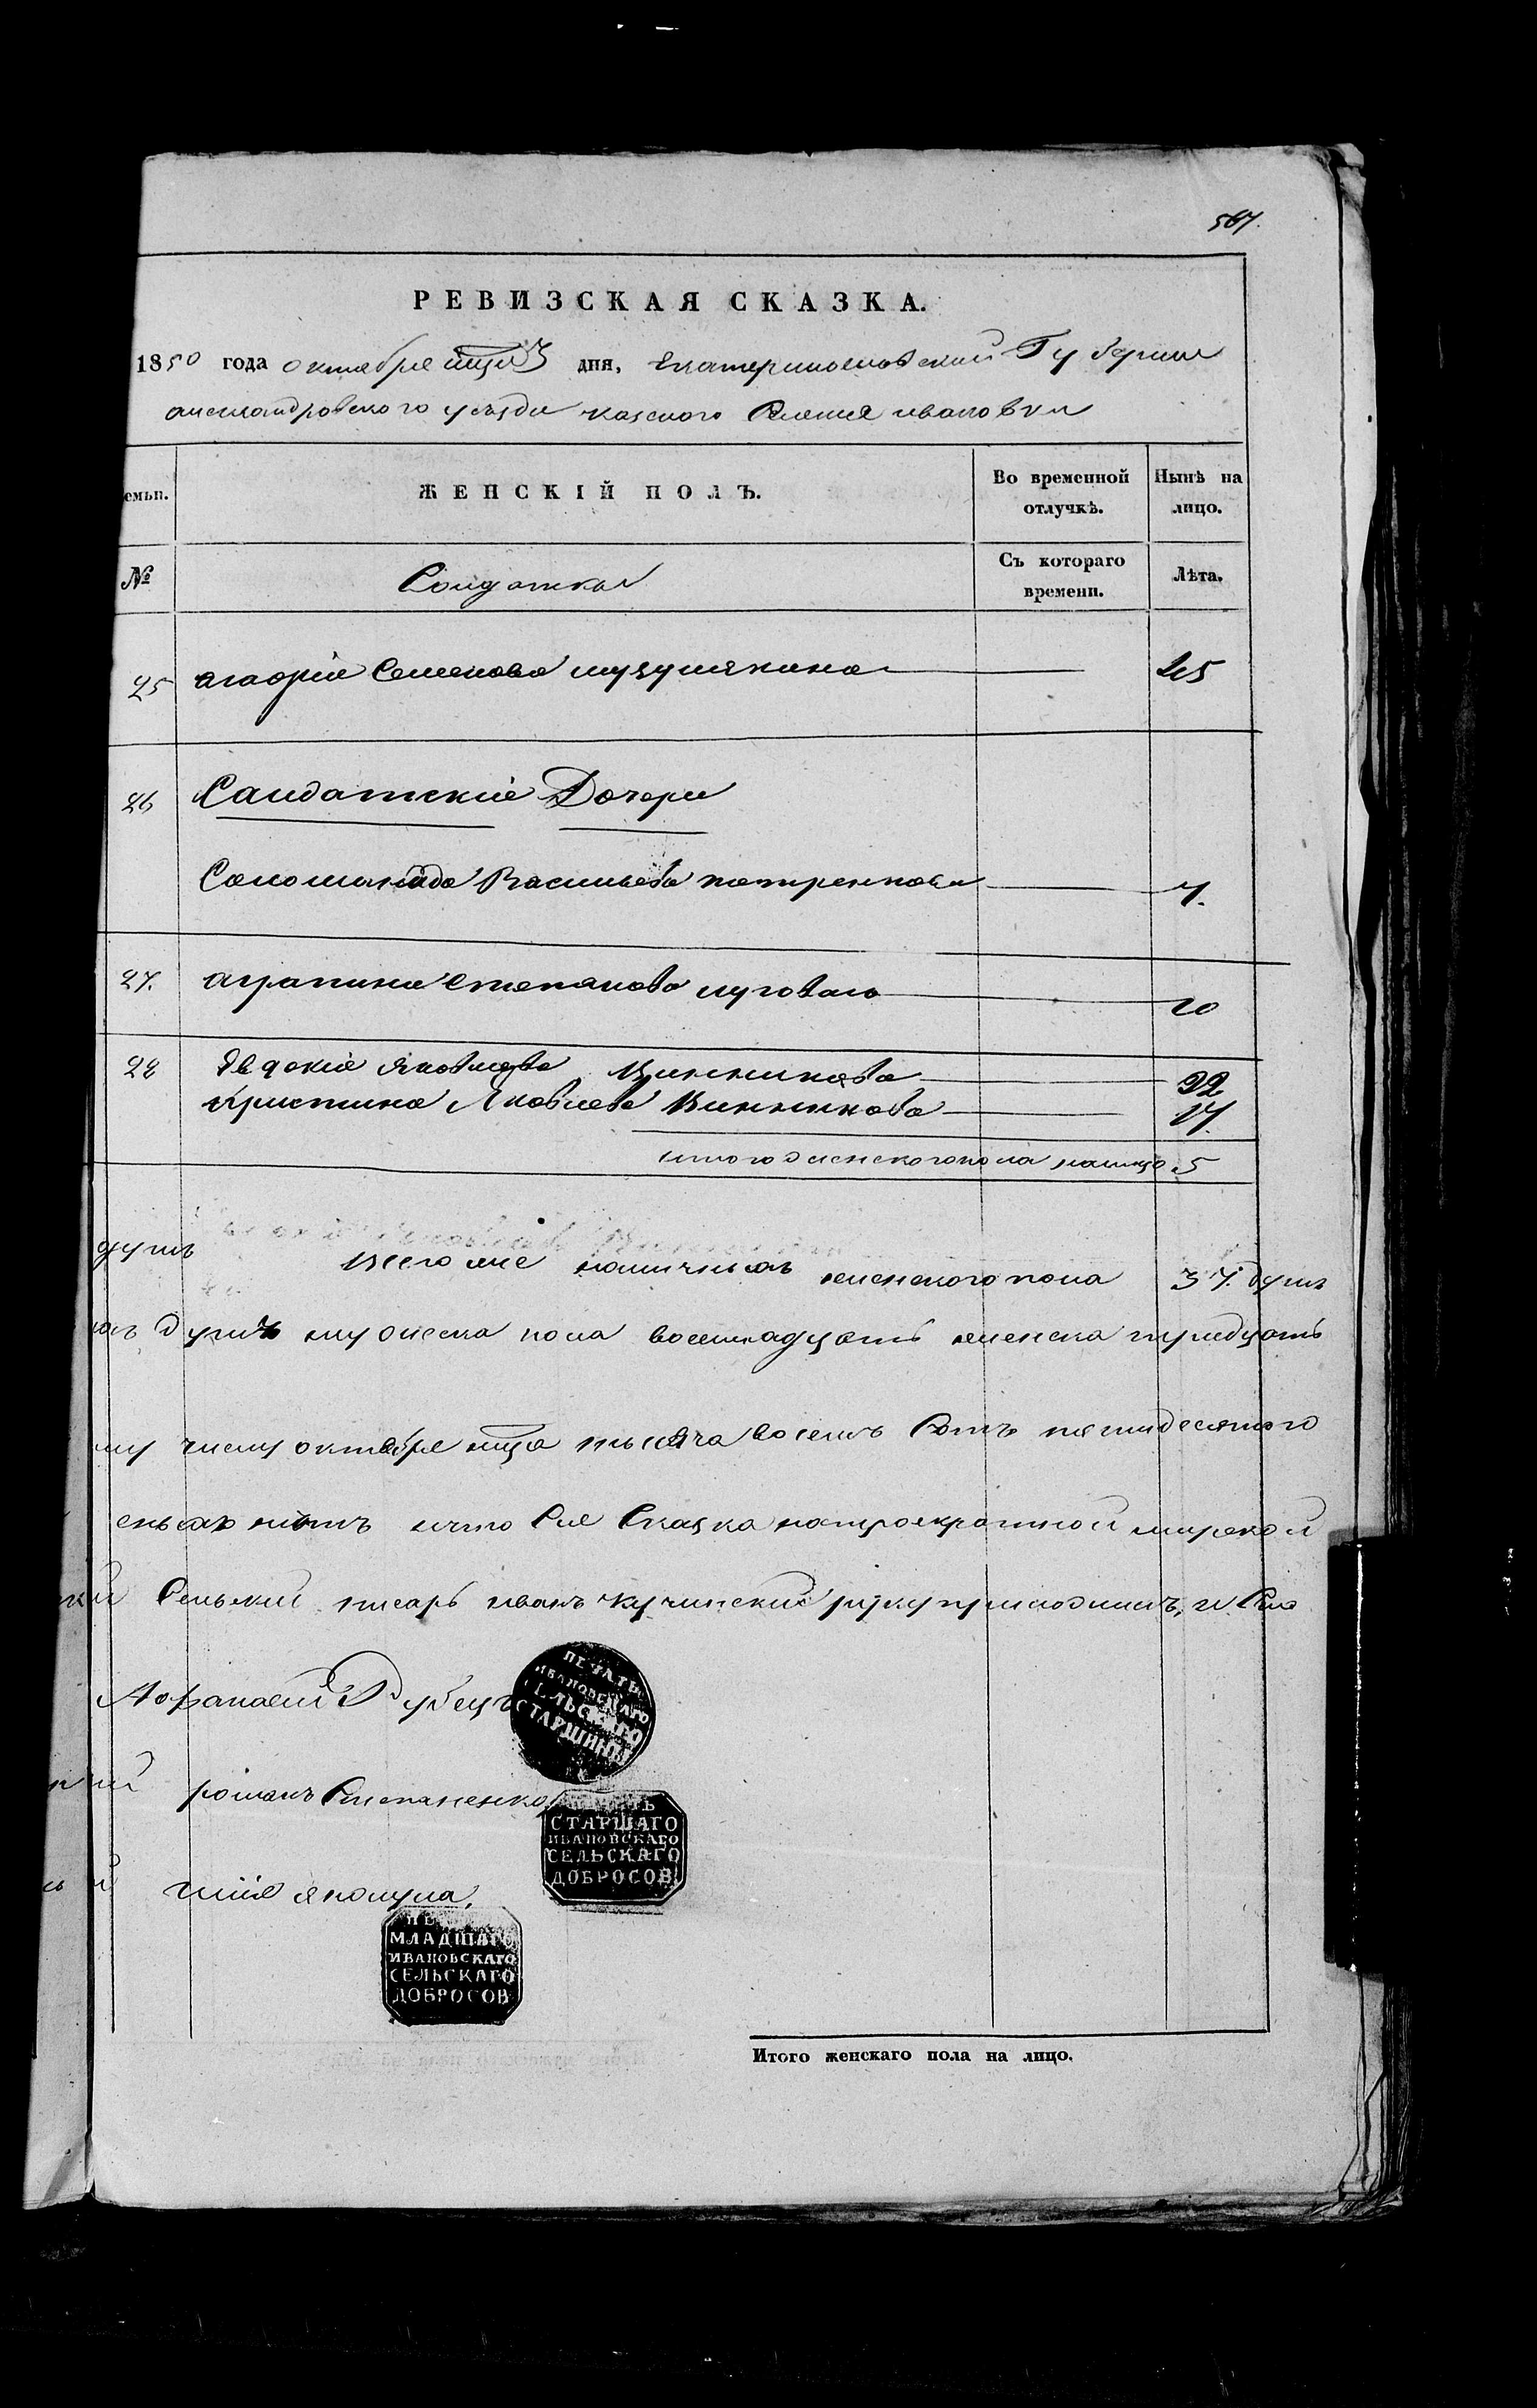 567.
РЕВИЗСКАЯ СКАЗКА.
1850 года октября мца 3 дня, Екатеринославской Губернии
александровского уезда казеного Селения ивановки
емьи.
ЖЕНСКІЙ ПОЛЪ.
Во временной отлучкѣ.
Нынѣ на лицо.
№
Солдатки
Съ котораго времени.
Лѣта.
25 агафія Семенова 45
26 Салдатскіе Дочери
Соломанида Васильева петренкова 7.
27. аграпина степанова луговая 20
28 Явдокія Яковлева Винникова 22
Кристина Яковлева Винникова 17.
итого женского пола налицо 5
душъ всего же наличныхъ женского пола 37. душъ
душъ мужеска пола восемнадцать женска тридцать
му числу октября мца тысяча восемъ Сотъ пятидесятого
нѣтъ и что Сия Сказка натроекратной мирской
Сельский писарь иванъ Кучинский руку приложилъ, и Сию
Афанасий Рубецъ
ПЕЧАТЬ
ИВАНОВСКАГО
СЕЛЬСКАГО
СТАРШИНЫ
романъ Степаненко
СТАРШАГО
ИВАНОВСКАГО
СЕЛЬСКАГО
ДОБРОСОВ
якопула,
МЛАДШАГО
ИВАНОВСКАГО
СЕЛЬСКАГО
ДОБРОСОВ
Итого женскаго пола на лицо.